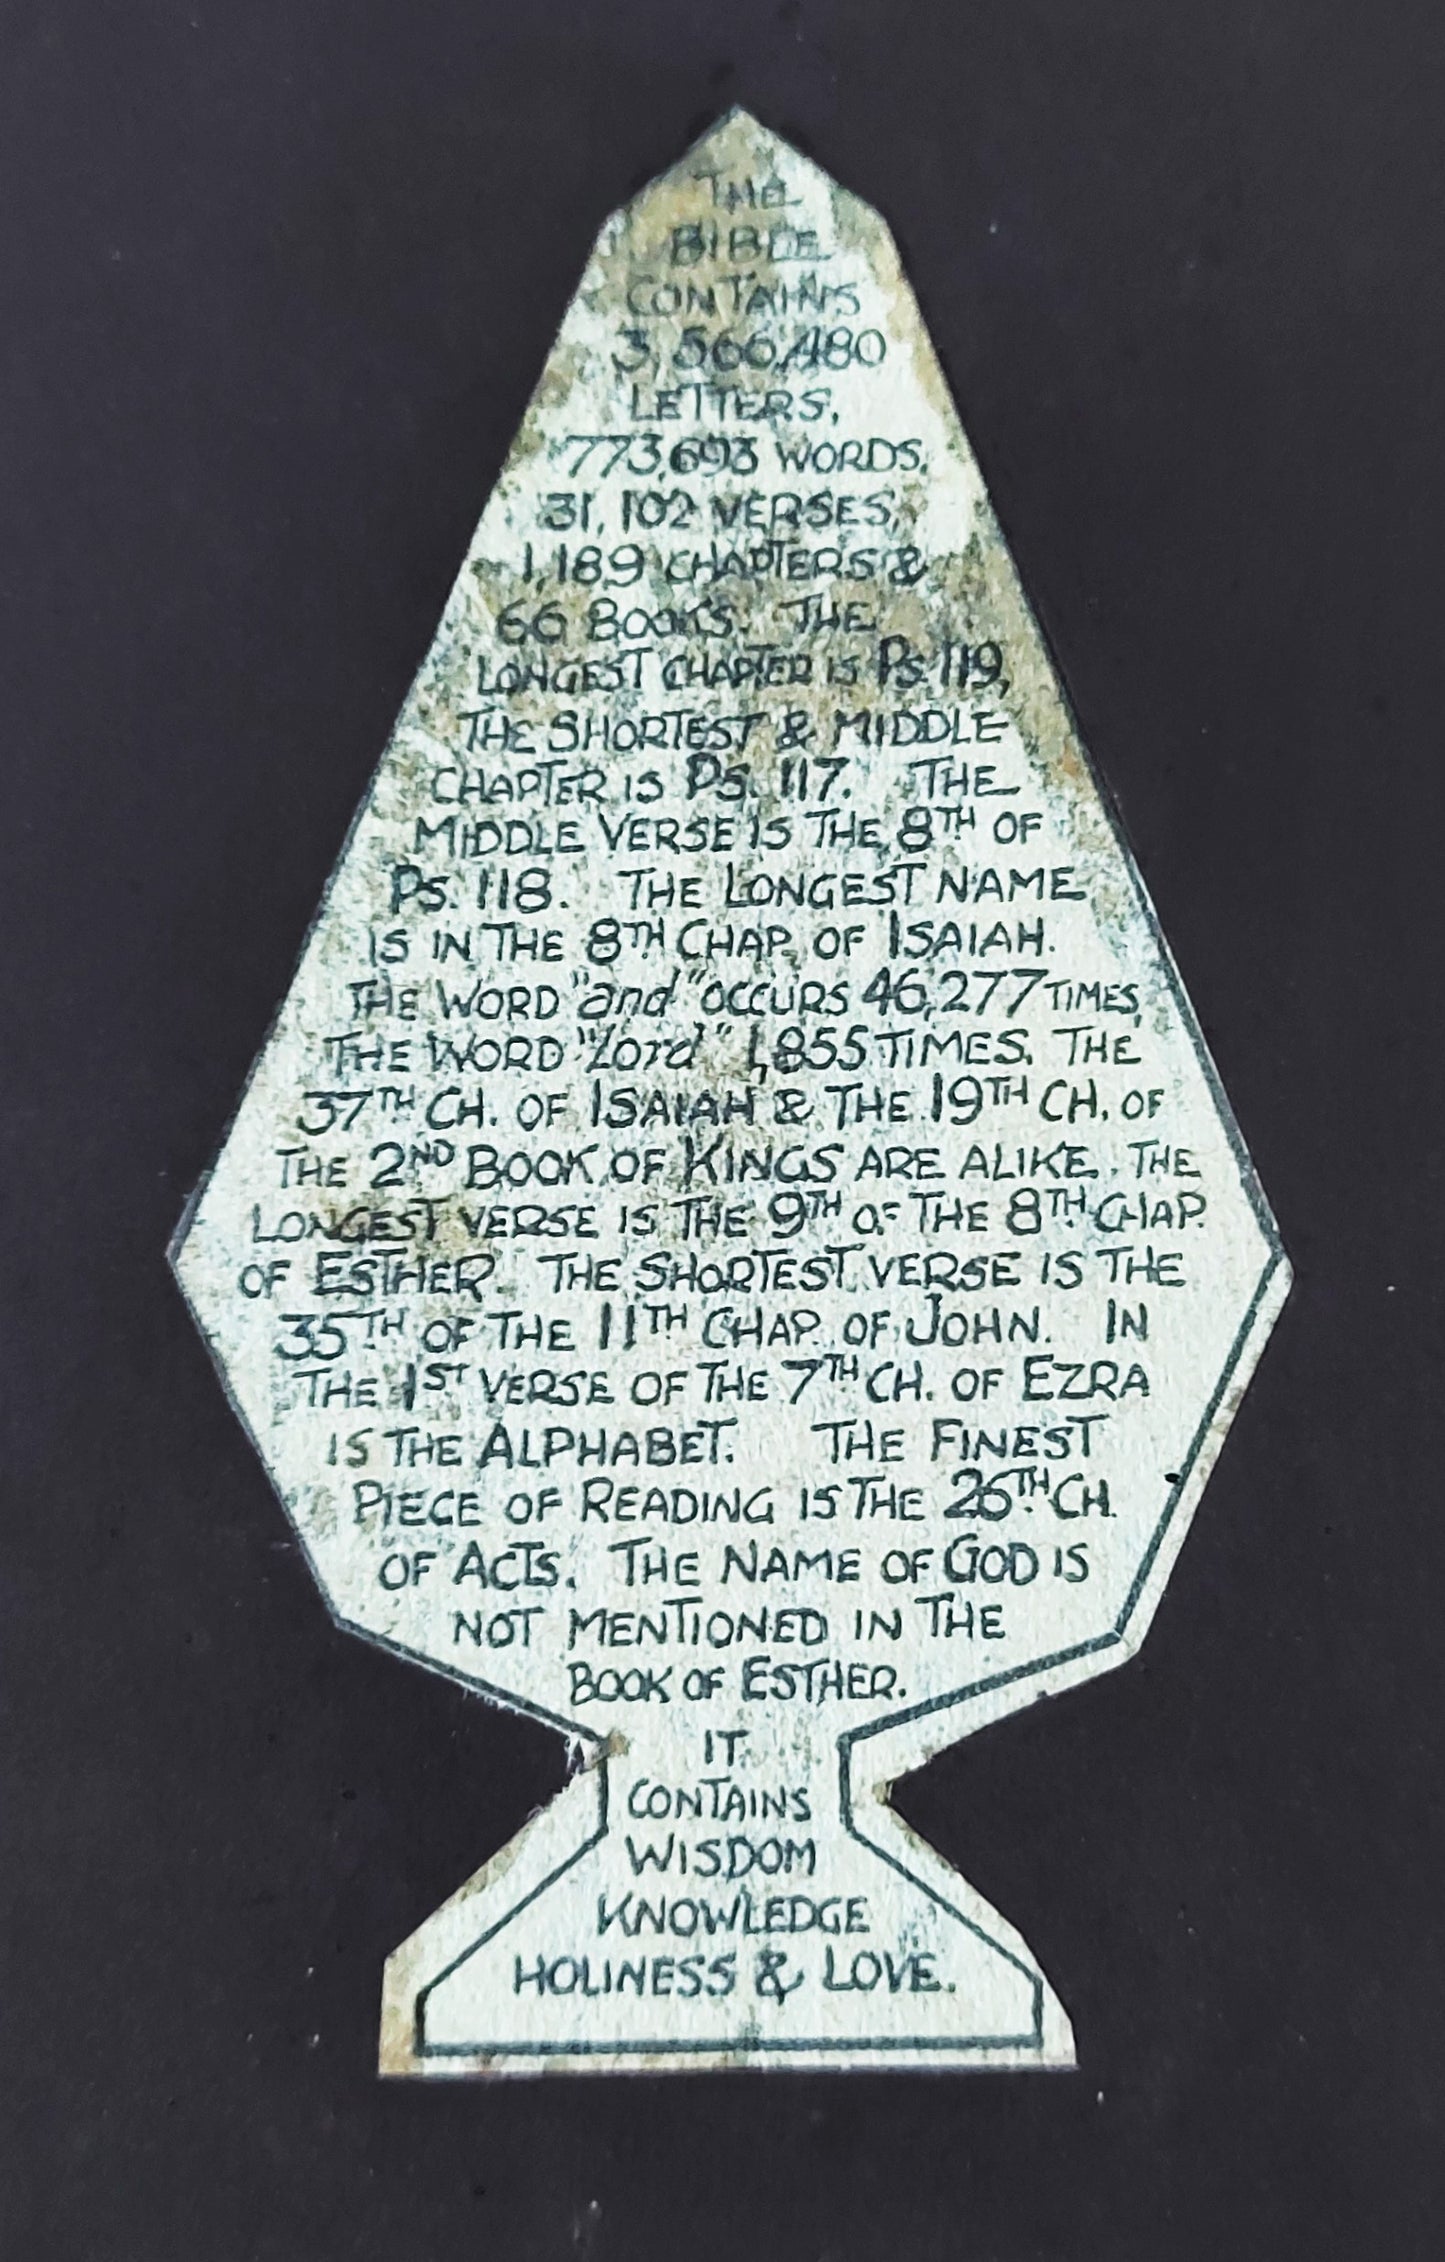 THE
BIBLE
CONTAINS
3,566,480
LETTERS,
773,693 WORDS,
31,102 VERSES,
1,189 CHAPTERS &
66 BOOKS. THE
LONGEST CHAPTER IS PS. 119,
THE SHORTEST & MIDDLE
CHAPTER IS PS. 117. THE
MIDDLE VERSE IS THE 8TH OF
PS. 118. THE LONGEST NAME
IS IN THE 8TH CHAP. OF ISAIAH.
THE WORD "and" OCCURS 46,277 TIMES,
THE WORD "Lord" 1,855 TIMES. THE
37TH CH. OF ISAIAH & THE 19TH CH. OF
THE 2ND BOOK OF KINGS ARE ALIKE. THE
LONGEST VERSE IS THE 9TH OF THE 8TH CHAP.
OF ESTHER. THE SHORTEST VERSE IS THE
35TH OF THE 11TH CHAP. OF JOHN. IN
THE 1ST VERSE OF THE 7TH CH. OF EZRA
IS THE ALPHABET. THE FINEST
PIECE OF READING IS THE 26TH CH.
OF ACTS. THE NAME OF GOD IS
NOT MENTIONED IN THE
BOOK OF ESTHER.
IT
CONTAINS
WISDOM
KNOWLEDGE
HOLINESS & LOVE.